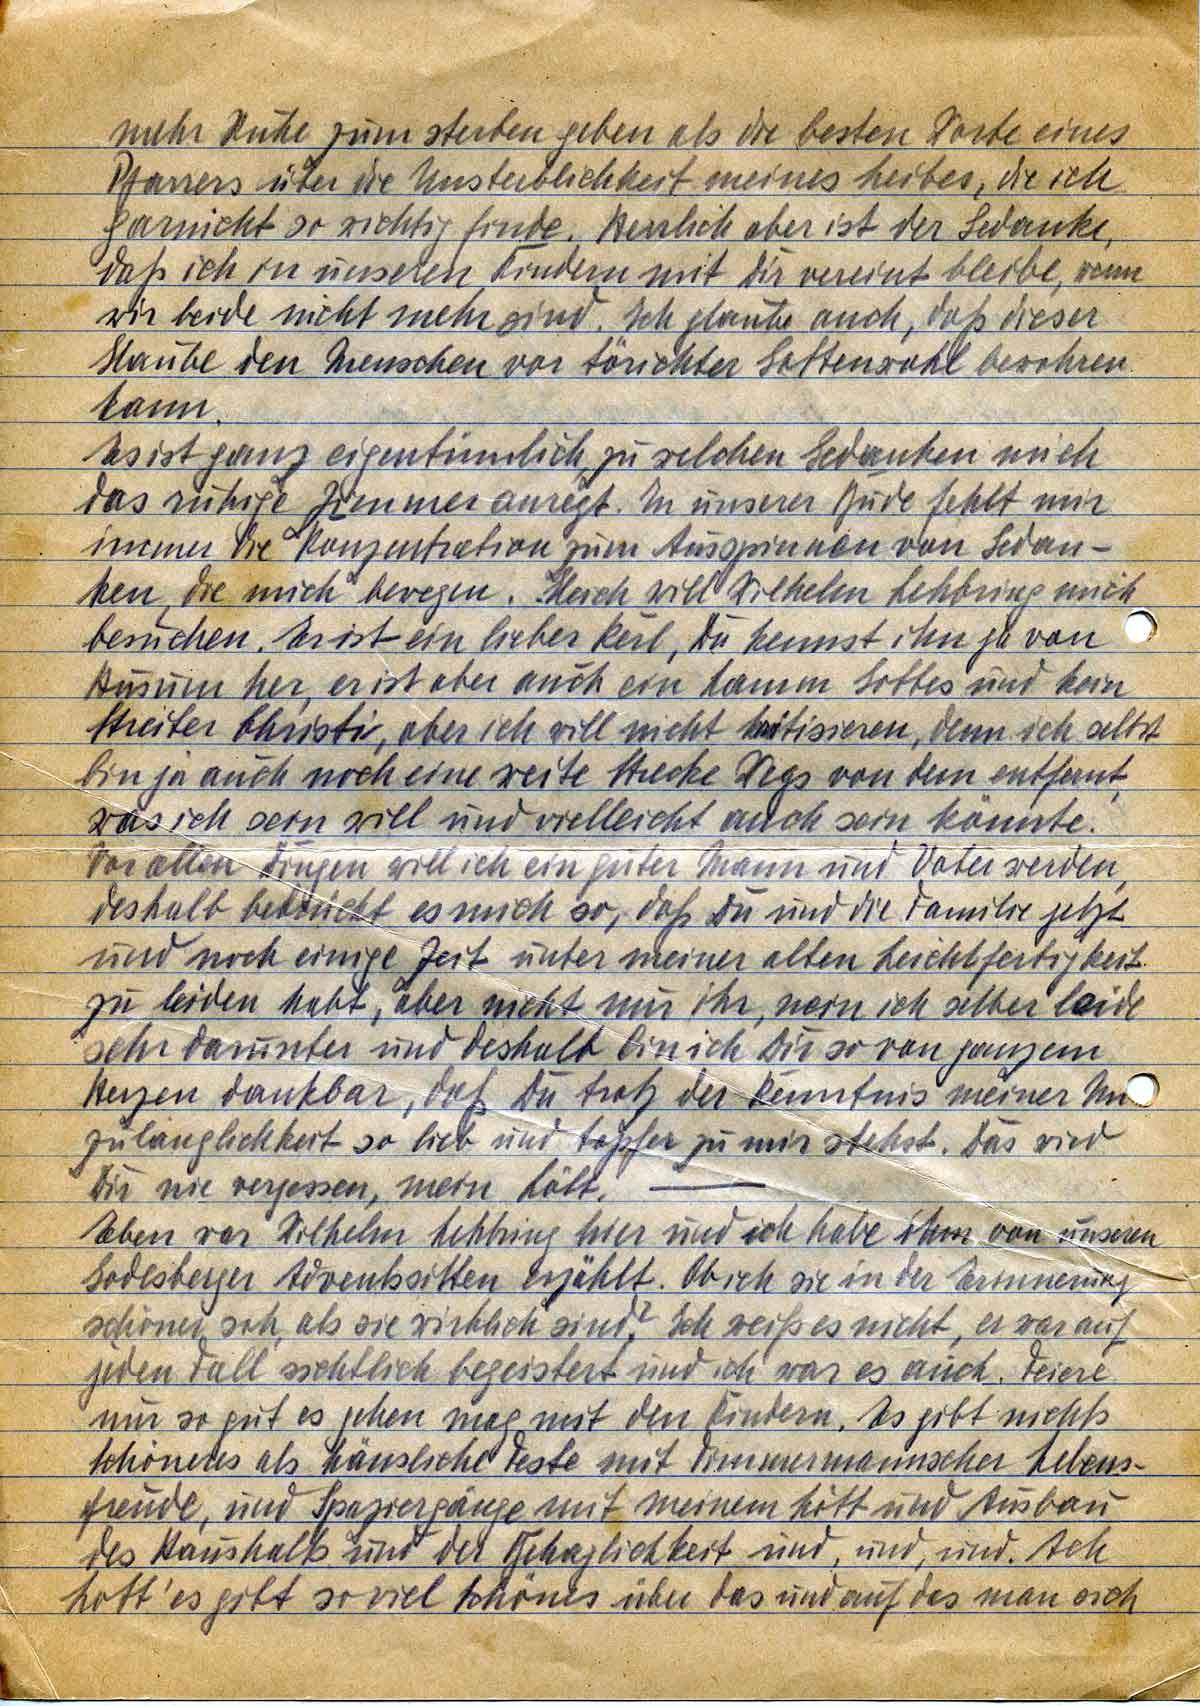 mehr Ruhe zum sterben geben als die besten Worte eines
Pfarrers über die Unsterblichkeit meines Leibes, die ich
garnicht so richtig finde. Herrlich aber ist der Gedanke,
daß ich in unseren Kindern mit Dir vereint bleibe, wenn
wir beide nicht mehr sind. Ich glaube auch, daß dieser
Glaube den Menschen vor törichter Gattenwahl bewahren
kann.
Es ist ganz eigentümlich, zu welchen Gedanken mich
das ruhige Zimmer anregt. In unserer Bude fehlt mir
immer die Konzentration zum Ausspinnen von Gedan-
ken, die mich bewegen. Gleich will Wilhelm Lehbring mich
besuchen. Er ist ein lieber Kerl, Du kennst ihn ja von
Husum her, er ist aber auch ein Lamm Gottes und kein
Streiter Christi, aber ich will nicht kritisieren, denn ich selbst
bin ja auch noch eine weite Strecke Wegs von dem entfernt,
was ich sein will und vielleicht auch sein könnte.
Vor allen Dingen will ich ein guter Mann und Vater werden,
deshalb bedrückt es mich so, daß Du und die Familie jetzt
und noch einige Zeit unter meiner alten Leichtfertigkeit
zu leiden habt, aber nicht nur ihr, nein ich selber leide
sehr darunter und deshalb bin ich Dir so von ganzem
Herzen dankbar, daß Du trotz der Kenntnis meiner Un
zulänglichkeit so lieb und tapfer zu mir stehst. Das wird
Dir nie vergessen, mein Lött. —
Eben war Wilhelm Lehbring hier und ich habe ihm von unseren
Godesberger Adventssitten erzählt. Ob ich sie in der Erinnerung
schöner sah, als sie wirklich sind? Ich weiß es nicht, er war auf
jeden Fall sichtlich begeistert und ich war es auch. Feiere
nur so gut es gehen mag mit den Kindern. Es gibt nichts
schöneres als häusliche Feste mit Timmermannscher Lebens-
freude, und Spaziergänge mit meinem Lött und Ausbau
des Haushalts und der Behaglichkeit und, und, und. Ach
Lött' es gibt so viel Schönes über das und auf das man sich